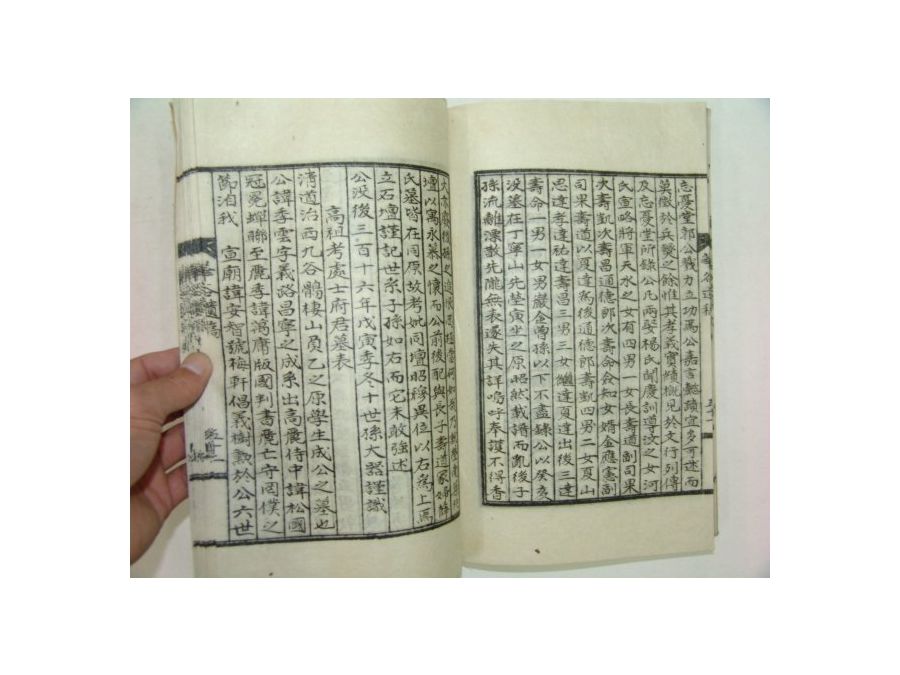 忘憂堂郭公戮力立功焉公嘉言懿蹟宜多可述而
莫徵於兵燹之餘惟其孝義實績概見於文行列傳
及忘憂堂所錄公凡兩娶楊氏聞慶訓導汶之女河
氏宣略將軍天水之女有四男一女長壽道副司果
次壽凱次壽昌通德郎次壽僉知女婿金應憲副
司果壽道以夏達爲後通德郎壽凱四男二女夏山
思達孝達祐達壽昌三男三女繼達夏達出後三達
壽命一男一女男巖金曾孫以下不盡錄公以癸亥
沒墓在丁寧山先塋寅坐之原昭然載譜而亂後子
孫流離漂散先隴無表遂失其詳嗚呼奉護不得香
壇以寓永慕之懷而公前後配與長子壽道冢婦
氏墓皆在同原故考妣同壇昭穆異位以右爲上焉
立石壇謹記世系子孫如右而它未敢強述
公沒後三百十六年戊寅季冬十世孫大器謹識
高祖考處士府君墓表
清道治西九谷鶻棲山負乙之原學生成公之墓也
公諱季雲字義路昌寧之成系出高麗侍中諱松國
冠冕蟬聯至麗季諱鴻庸版國判書麗亡守罔僕之
節洎我 宣廟諱安智號梅軒倡義樹勳於公六世